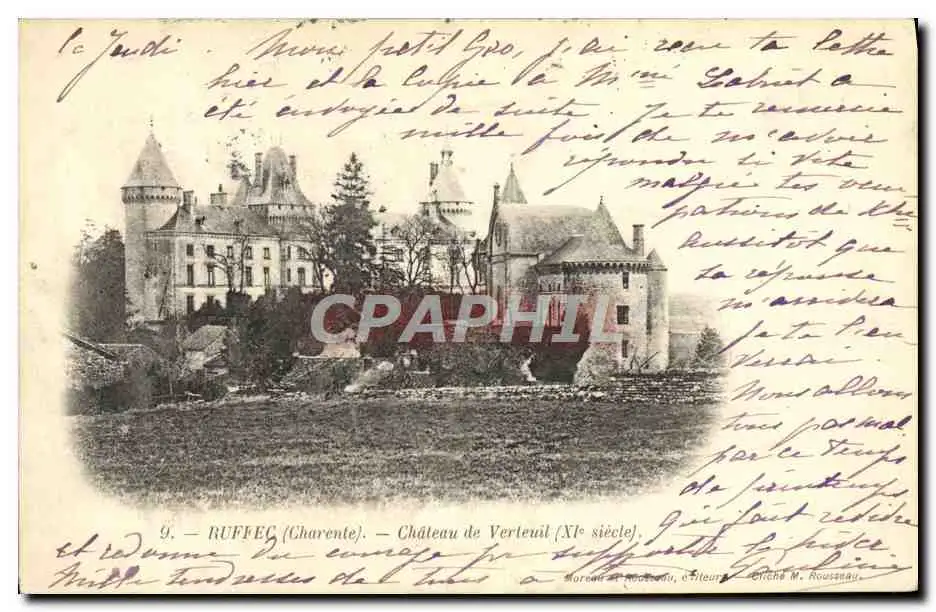 ce Jeudi.
Mon petit Gro, j'ai reçu ta lettre
hier et la copie à Mme Labriet a
été envoyée de suite. Je te remercie
mille fois de m'avoir
répondre si vite
malgré tes
patrons de
Aussitôt que
sa réponse
m'arrivera
je te l'en
verrai.
Nous allons
tous pas mal
par ce temps
de printemps
qui fait
et redonne du courage pour supporter le
Mille tendresses de tous à
CPAPHIL
9. - RUFFEC (Charente). - Château de Verteuil (XIe siècle).
Moreau et Rousseau, éditeurs Cliché M. Rousseau.